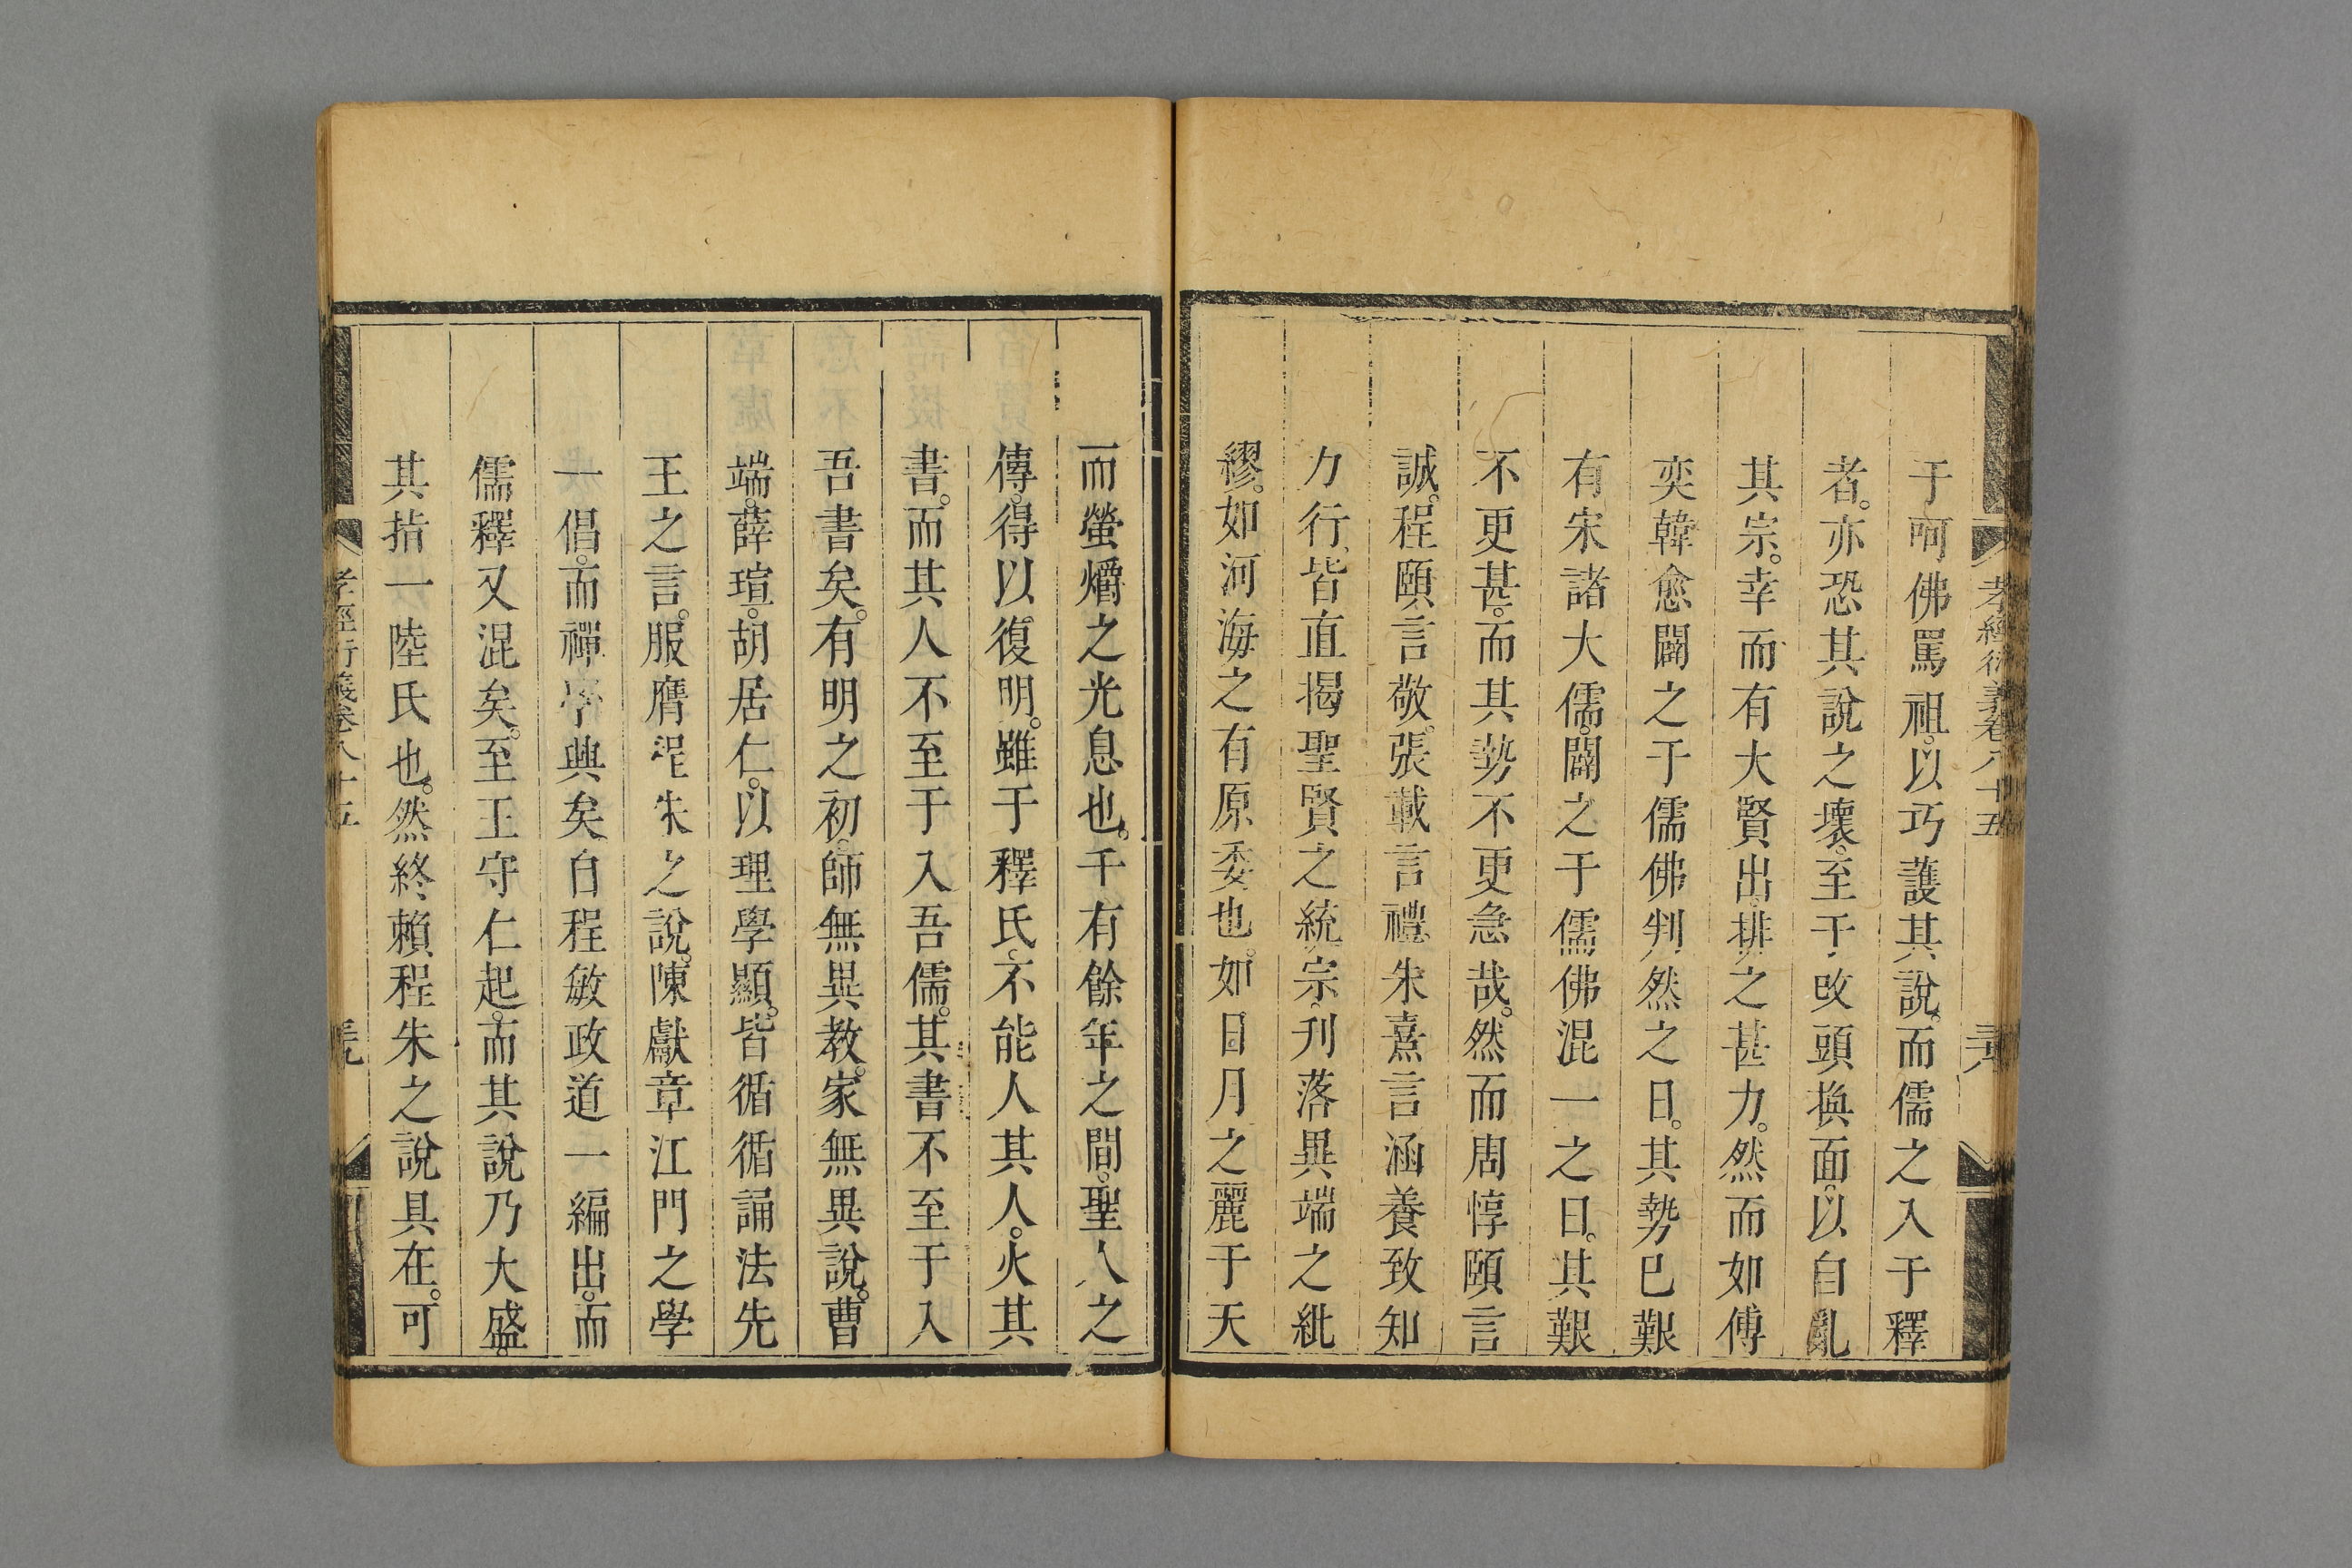 孝經衍義卷八十五
于呵佛罵祖。以巧護其說。而儒之入于釋
者。亦恐其說之壞。至于改頭換面。以自亂
其宗。幸而有大賢出。排之甚力。然而如傅
奕韓愈闢之于儒佛判然之日。其勢已艱
有宋諸大儒。闢之于儒佛混一之日。其艱
不更甚。而其勢不更急哉。然而周惇頤言
誠。程頤言敬。張載言禮。朱熹言涵養致知
力行。皆直揭聖賢之統宗。刋落異端之紕
繆。如河海之有原委也。如日月之麗于天
而螢爝之光息也。千有餘年之間。聖人之
傳。得以復明。雖于釋氏。不能人其人。火其
書。而其人不至于入吾儒。其書不至于入
吾書矣。有明之初。師無異教。家無異說。曹
端。薛瑄。胡居仁。以理學顯。皆循循誦法先
王之言。服膺程朱之說。陳獻章江門之學
一倡。而禪學興矣。自程敏政道一編出。而
儒釋又混矣。至王守仁起。而其說乃大盛。
其指一陸氏也。然終賴程朱之說具在。可
孝經衍義卷八十五